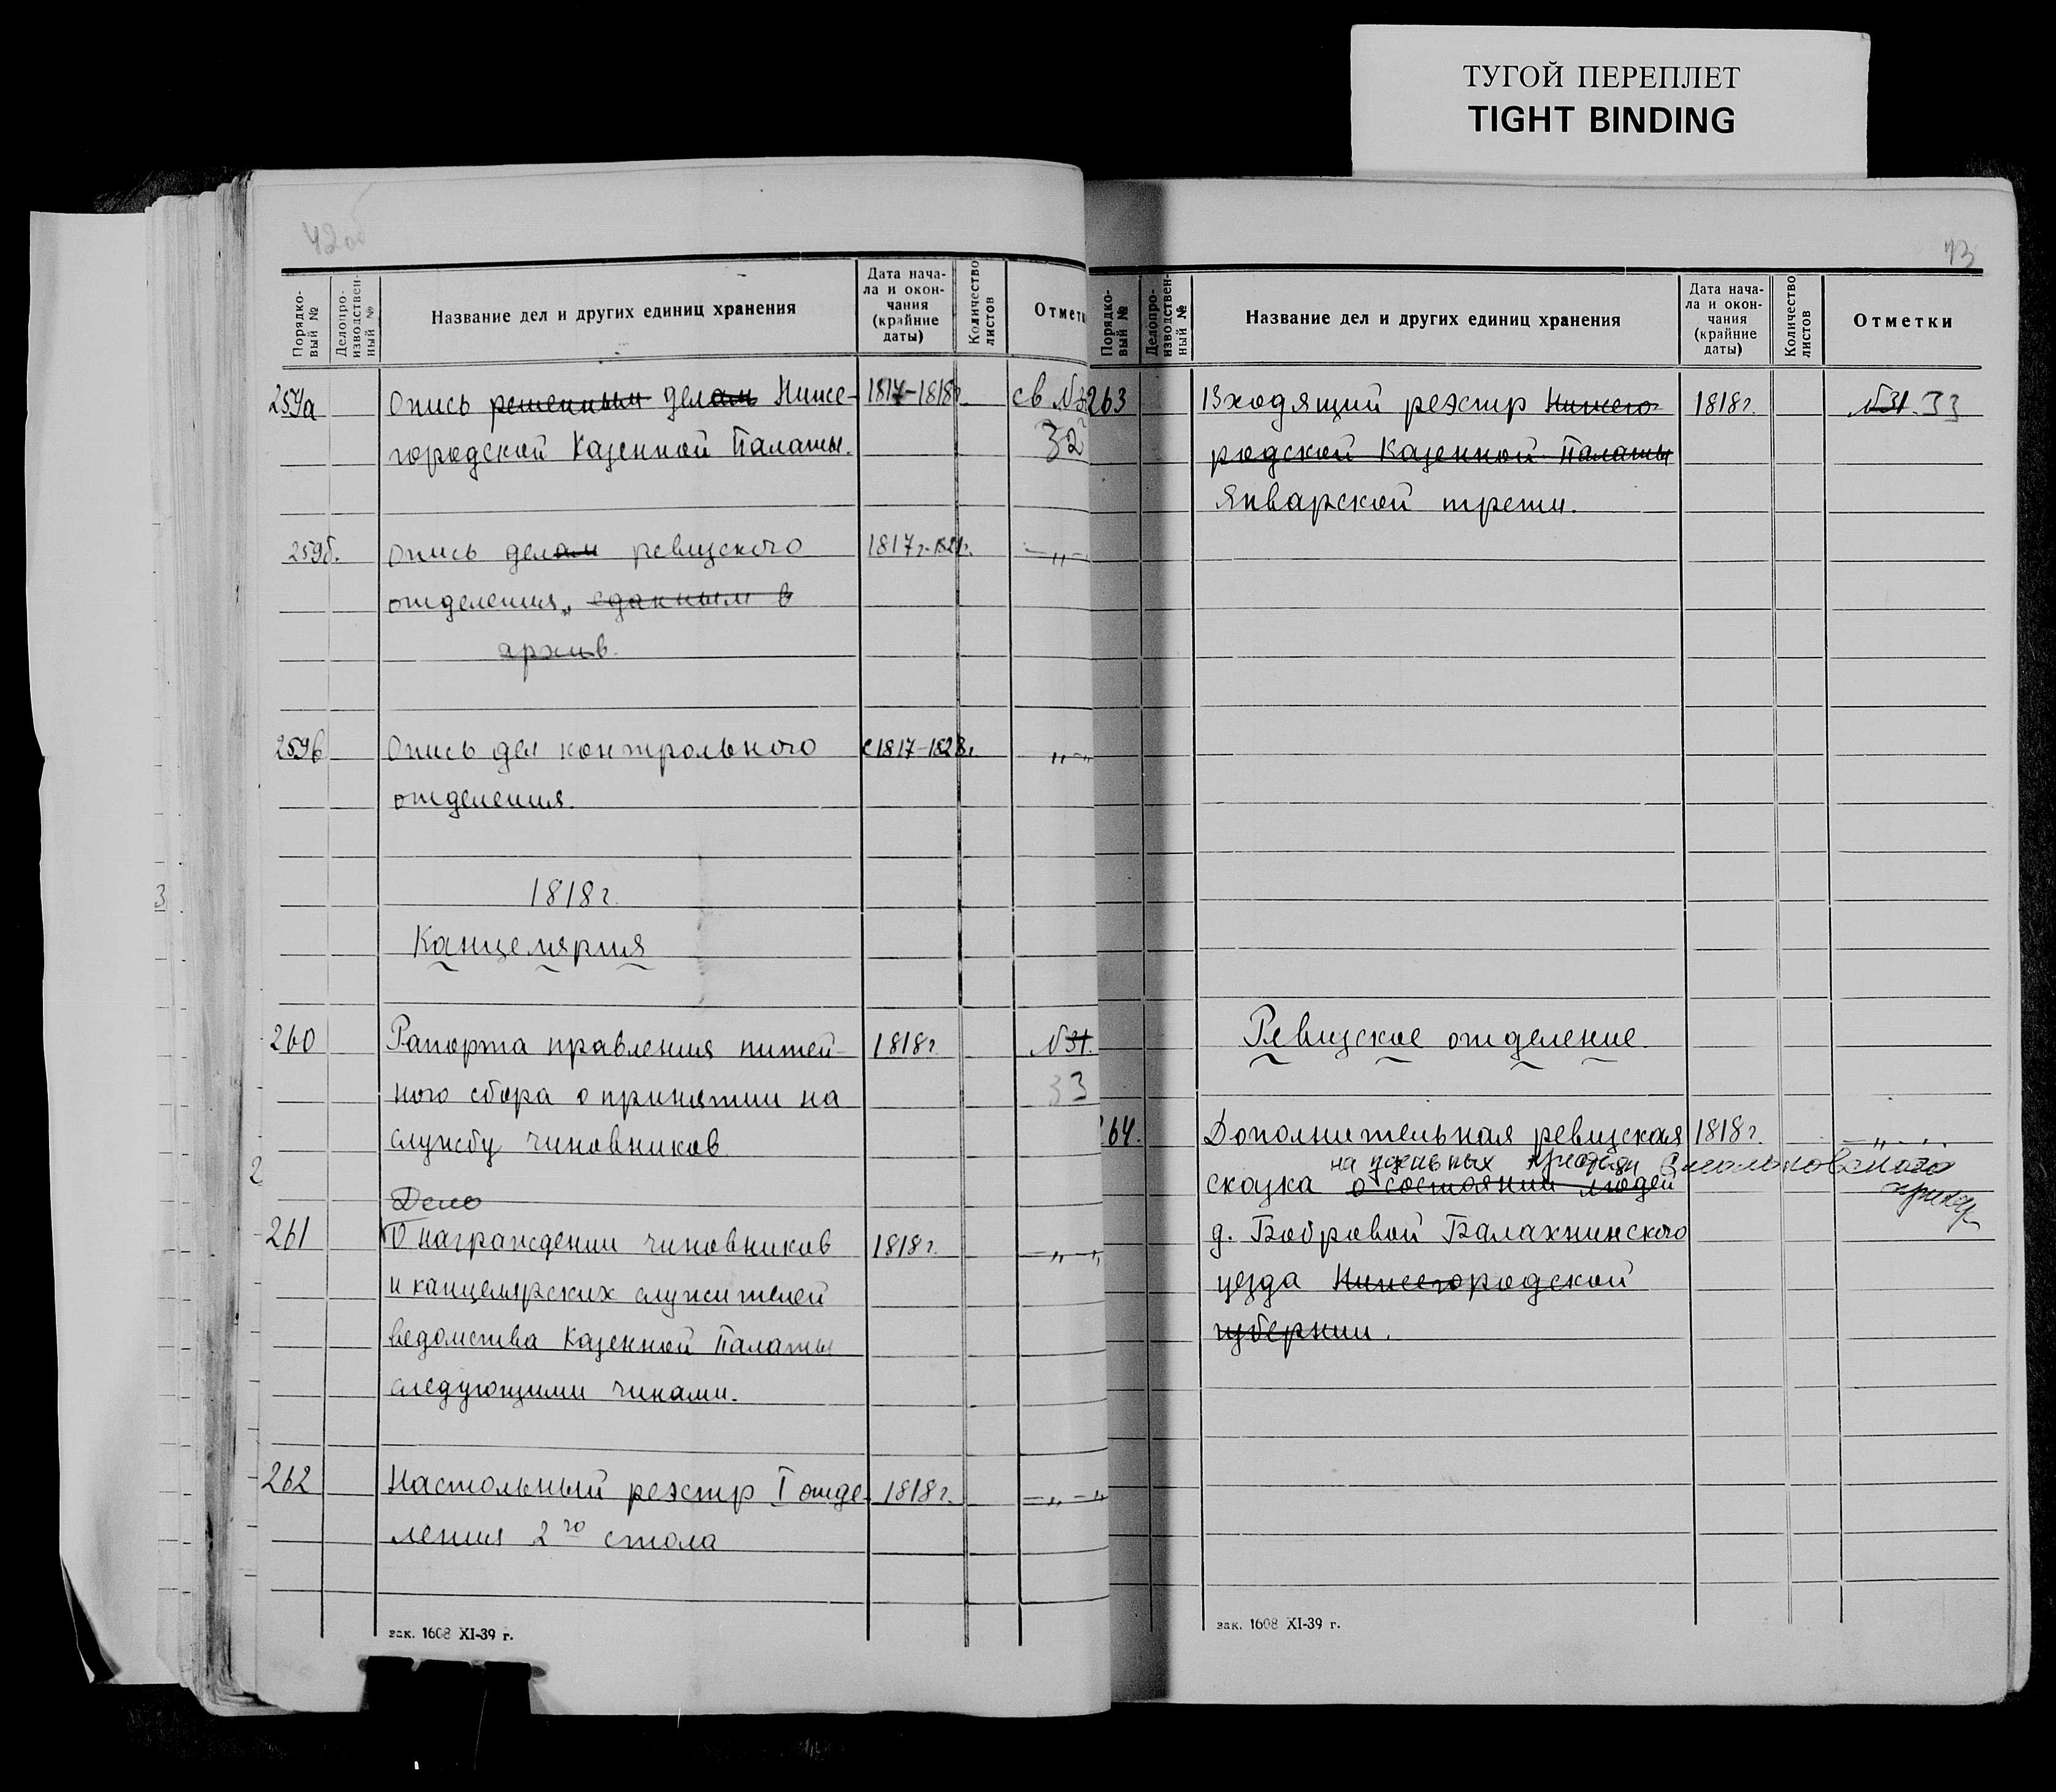 ТУГОЙ ПЕРЕПЛЕТ
TIGHT BINDING
42об
Порядковый №
Делопроизводствен-ный №
Название дел и других единиц хранения
Дата нача-
ла и окон-
чания
(крайние
даты)
Количество листов
Отметк
259а Опись решенным делам Ниже- 1817-1818г. св №
городской Казенной Палаты. 32
259б. Опись делам ревизского 1817г.-1821г. —„—
отделения, сданным в
архив.
259в Опись дел контрольного с 1817-1828г. „-„
отделения.
1818г.
Канцелярия
260 Рапорта правления питей- 1818г. №31.
ного сбора о принятии на 33
службу чиновников
Дело
261 О награждении чиновников 1818г. —„—„
и канцелярских служителей
ведомства Казенной Палаты
следующими чинами.
262 Настольный реэстр I отде- 1818г. —„—„
ления 2го стола
зак. 1608 XI-39 г.
43
Порядковый №
Делопроизводствен-ный №
Название дел и других единиц хранения
Дата нача-
ла и окон-
чания
(крайние
даты)
Количество листов
Отметки
263 Входящий реэстр Нижего- 1818г. №31. 33
родской Казенной Палаты
Январской трети.
Ревизское отделение.
264. Дополнительная ревизская 1818г. —„—
на удельных крестьян
сказка о состоянии людей
д. Бобровой Балахнинского
уезда Нижегородской
губернии.
зак. 1608 XI-39 г.
3
2